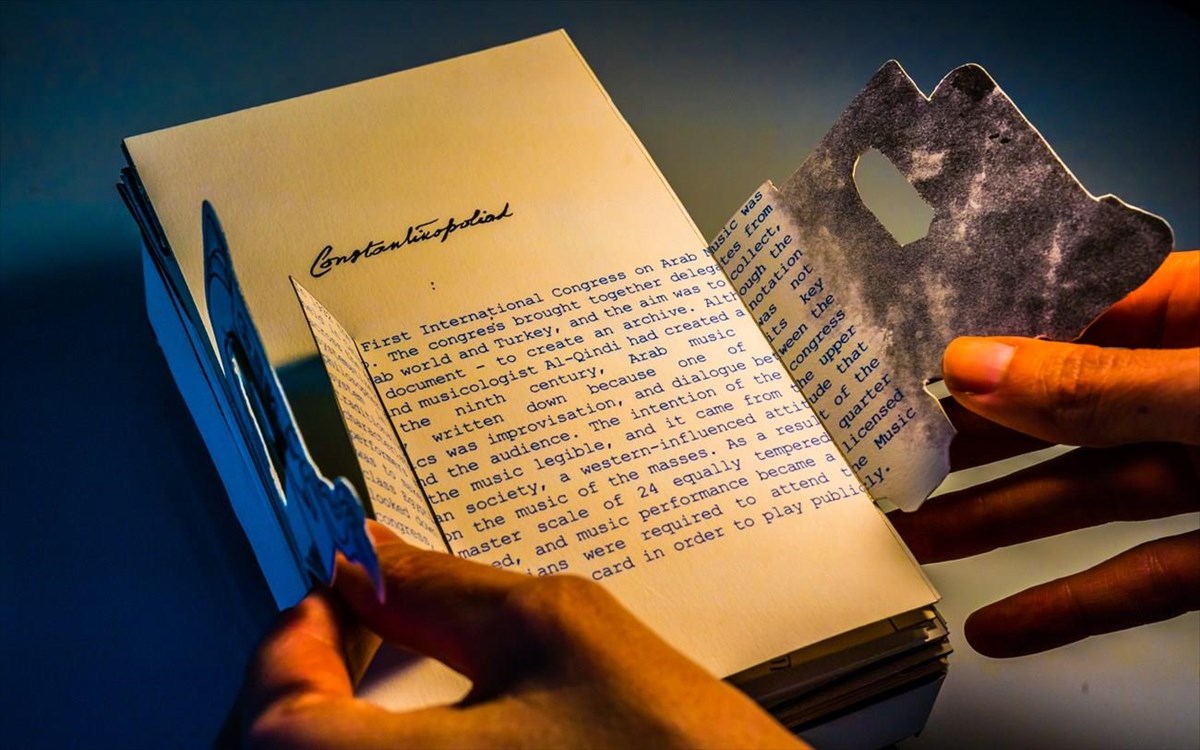 Constantinopoliad
:
First International Congress on Arab Music was
. The congress brought together delegates from
ab world and Turkey, and the aim was to collect,
document – to create an archive. Although the
nd musicologist Al-Qindi had created a notation
the ninth century, Arab music was not
written down because one of its key
cs was improvisation, and dialogue between the
the audience. The intention of the congress
the music legible, and it came from the upper
n society, a western-influenced attitude that
on the music of the masses. As a result of the
master scale of 24 equally tempered quarter
ed, and music performance became a licensed
ians were required to attend the Music
card in order to play publicly.
was to
class
looked
congress,